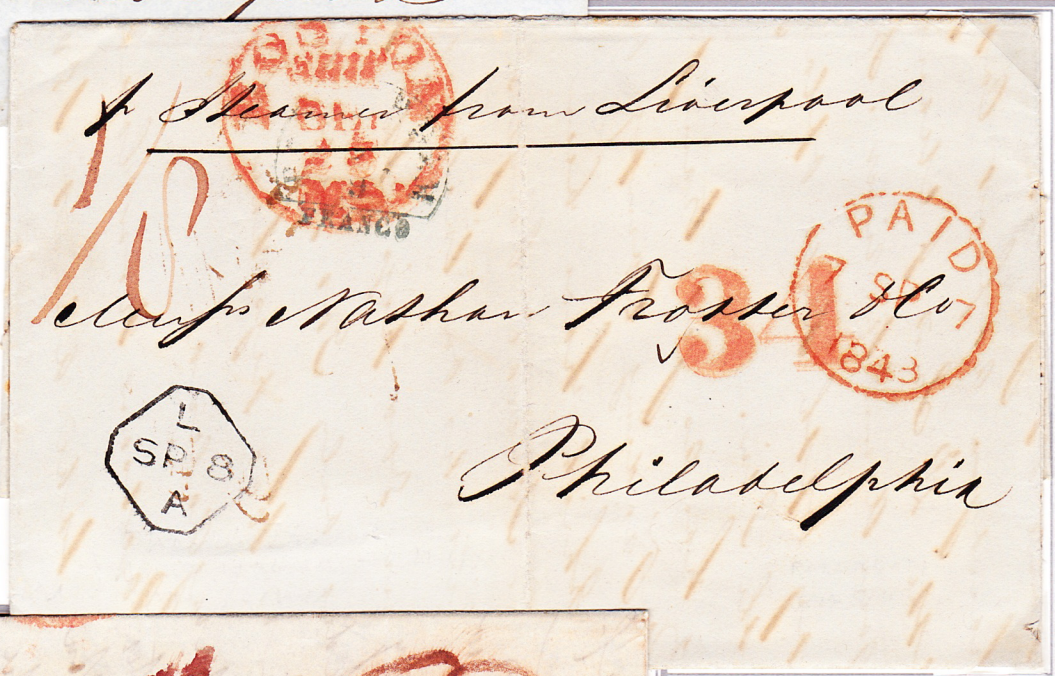 BOSTON
SHIP
SEP
23
MS.
FRANCO
pr Steamer from Liverpool
1/8
PAID
7 SP 7
1843
34
Messrs Nathan Trotter & Co
Philadelphia
L
SP 8
A